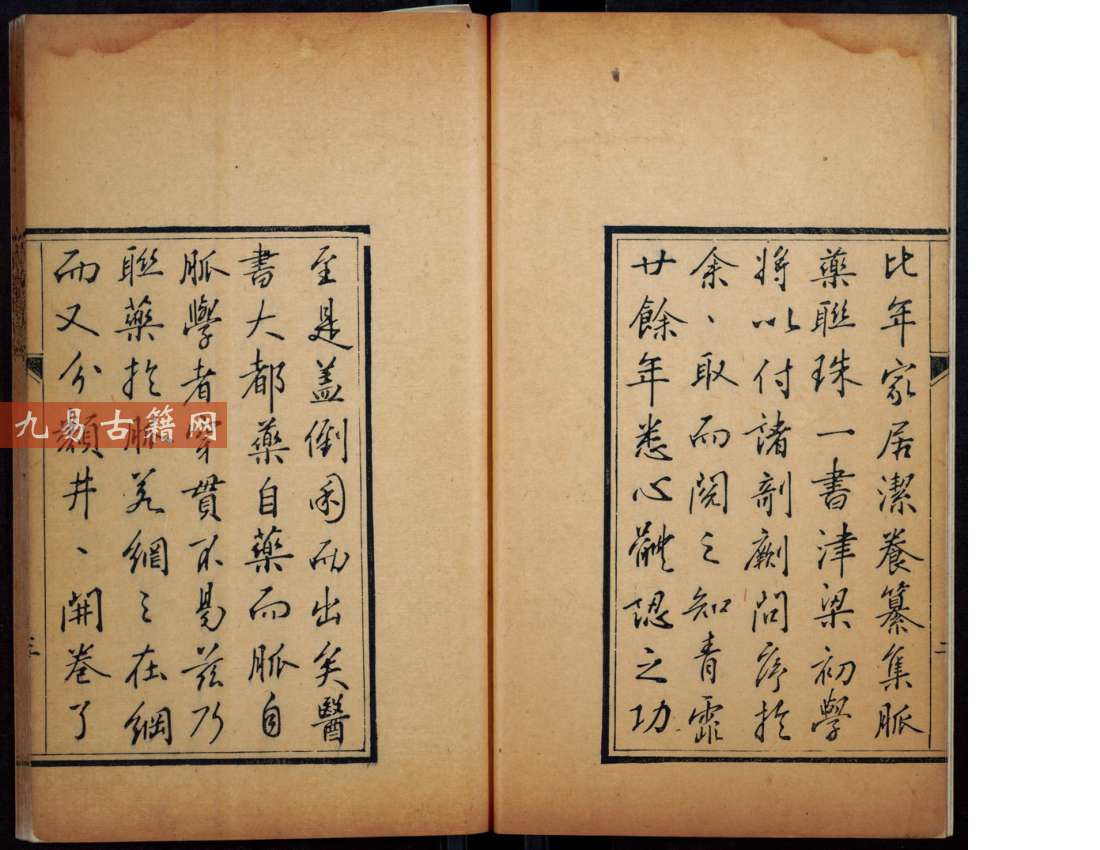 比年家居潔養纂集脈
藥聯珠一書津梁初學
將以付諸剞劂問序於
余、取而閱之知青霏
廿餘年悉心體認之功
二
至是蓋倒困而出矣醫
書大都藥自藥而脈自
脈學者穿貫不易茲乃
聯藥於脈若網之在綱
而又分類井、開卷了
三
九易古籍网